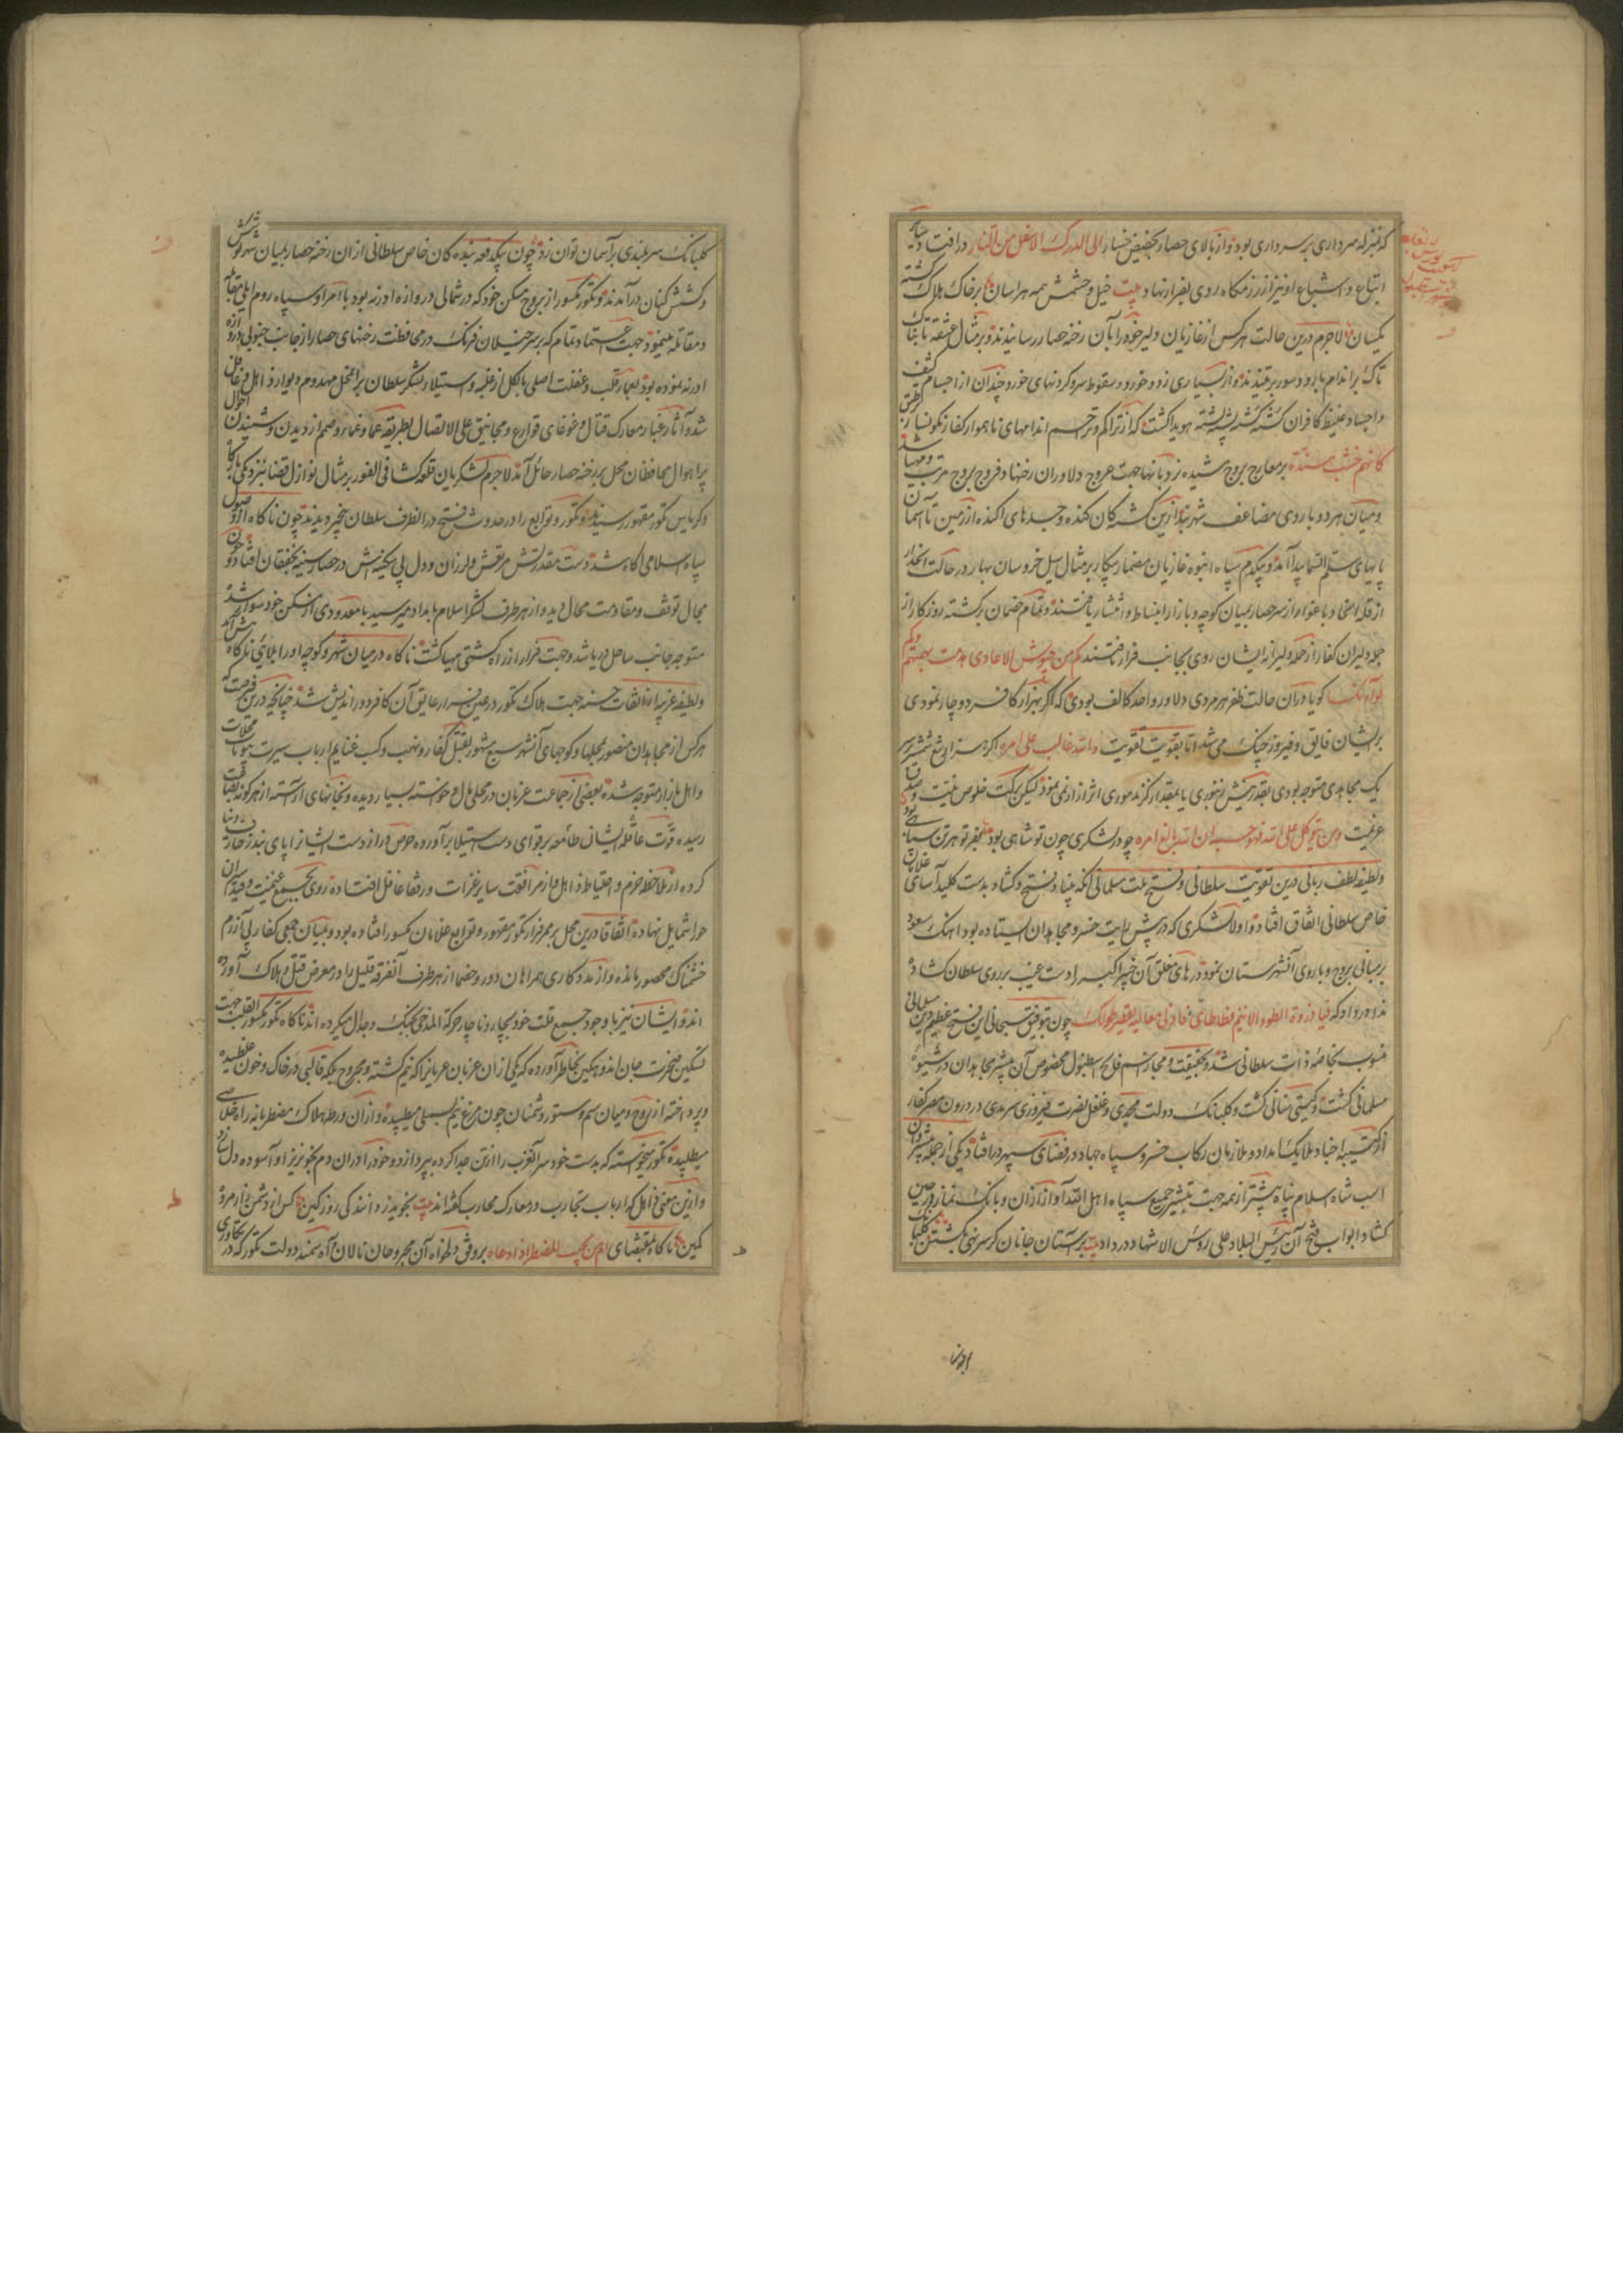 که بمنزله سرداری بر سرداری بود و از بالای حصار بحضیض خسار الی الدرک الاسفل من النار در افتاد و سایر
اتباع و اشیاع او نیز از رزمگاه روی بفرار نهاد بیت خیل و حشمش همه هراسان بر خاک هلاک گشته
یکسان لاجرم درین حالت هرکس از غازیان دلیر خود را بآن رخنه حصار رسانیدند و بر مثال عشقه تابناک
تاک بر اندام بارو و سور بر تنیدند و از بسیاری زد و خورد و سقوط سر و گردنهای خورد چندان از اجسام کثیف
و اجساد غلیظ کافران کشته کشته پشته پشته هویدا گشت که از تراکم اندامهای ناهموار کفار نگونسار بر طبق
کانهم خشب مسندة بر معارج بروج مشیده نردبانها جهت عروج دلاوران رخنها و فروج بروج مرتب و مهیا شد
و میان هر دو باروی مضاعف شهربند ازین کشتگان کنده و جسدهای اکنده از زمین تا آسمان
پایهای سلم السما پیدا آمد و بیکدم سپاه انبوه غازیان مضمار پیکار بر مثال سیل خروسان بهار در حالت انحدار
از قله از سر حصار بمیان کوچه و بازار انبساط و انتشار یافتند و تمام خصمان برگشته روزگار از
حمله دلیران کفار از حمله دلیرانه ایشان روی بجانب فرار تافتند کم من جیوش الاعادی هدمت بهمتهم
گویا در آن حالت ظفر هر مردی دلاور واحد کالف بودی که اگر بهزار کافر دوچار نمودی
بر ایشان فایق و فیروز جنک می شد اما بتقویت تقویت والله غالب علی امره اگر هزاران تیغ شمشیر بر سر
یک مجاهدی متوجه بودی بقدر نیش زنبوری یا بمقدار گزند موری اثر ازار نمی نمود لیکن ببرکت خلوص نیت و صدق
عزیمت و من یتوکل علی الله فهو حسبه ان الله بالغ امره چو در لشکری چون تو شاهی بود بفر تو هر تن سپاهی بود
و لطیفه لطف ربانی درین تقویت سلطانی و فتح ملت مسلمانی آنکه بنیاد فتح و گشاد بدست کلید آسای غلامان
خاص سلطانی اتفاق افتاد و اولا لشکری که در پیش رایت خسرو مجاهدان ایستاده بود آهنک صعود
بر مبانی بروج و باروی آنشهرستان نمود و درهای مغلق آن خیبر اکبر را دست غیب بر روی سلطان گشاده
ندا در داد که فیا ذروة الطود چون بتوفیق سبحانی این فتح عظیم دین مسلمانی
منسوب بخاصه ذات سلطانی شد و بحقیقت و مجاز اسم فاتح اسطنبول مخصوص آن مبشر مجاهدان در شیوه
مسلمانی گشت و گیتی ستانی گشت و کلبانک دولت محمدی و غلغل نصرت فیروزی سرمدی در درون مصر کفار
از کتیبه اجناد ملایک امداد و ملازمان رکاب خسرو سپاه جهاد در فضای سپهر در افتاد و یکی از جمله مبشران
اسب شاه اسلام پناه پیشتر از همه جهت تبشیر جمیع سپاه اهل الله آواز اذان و بانک نماز در حین
گشاد ابواب فتح آن رئیس البلاد علی رؤس الاشهاد در داد بیت بر آستان جانان گر سر توان نهادن
کلبانک سربلندی بر آسمان توان زد چون بیکدفعه بندهکان خاص سلطانی از ان رخنه حصار بمیان شهر کوشش
و کشش کنان درآمدند و تکور مکسور از بروج مسکن خود که در شمالی دروازه ادرنه بود با امرا و سپاه روم ایلی مقابله
و مقاتله مینمود و جهت اعتماد تمام که بر سرخیلان فرنک در محافظت رخنهای حصار از جانب جنوبی دروازه
ادرنه نموده بود و غفلت اصلی بالکل از غلبه و استیلاء لشکر سلطان بر آن محل مهدوم و دیوار ذاهل و غافل
شد و آثار غبار معارک قتال و غوغای قوارع و مجانیق علی الاتصال بطریقه عما و غماء و صمم از دیدن و شنیدن احوال
پر اهوال محافظان محل بر رخنه حصار حائل آمد لاجرم لشکریان قلعه کشا فی الفور بر مثال نوازل قضا بنزدیکی بارگاه
و کریاس تکور مقهور رسیدند و تکور و توابع را در حدوث فتح در انطرف سلطان بیخبر دیدند چون ناگاه از وصول
سپاه اسلامی آگاه شد دست مقدرتش مرتعش و لرزان و دل بی سکینه اش در حصار سینه بخفقان افتاد و چون
مجال توقف و مقاومت محال دید و از هر طرف لشکر اسلام بامداد میرسید با معدودی از مسکن خود سوار شد
متوجه جانب ساحل دریا شد و جهت فرار از راه کشتی مهیا گشت ناگاه در میان شهر و کوچه او را بلائی ناگاه پیش آمد
و لطیفه غریبه از اتفاقات حسنه جهت هلاک تکور در عین فرار عایق آن کافر دور اندیش شد چنانچه درین فرصت که
هرکس از مجاهدان منصور بمحلها و کوچهای آنشهر مشهور بقتل کفار و نهب و کسب غنایم ارباب سیرت بیوتات و محلات
و اهل بازار متوجه شده بعضی از جماعت عزبان در محلی مال و خواسته بسیار دیده و بخانهای آراسته از هرگونه نفایس
رسیده قوت عاقله ایشان طامعه بر قوای دست استیلا برآورده حرص دراز دست ایشانرا پای بند زخارف دنیا
کرده از ملاحظه حزم و احتیاط ذاهل و از مرافقت سایر غزات و رفقا غافل افتاده روی بجمع غنیمت و صید اسیران
حورا شمایل نهاده اتفاقا درین محل بر ممر فرار تکور مقهور و توابع غلامان مکسور افتاده بود و بمیان جمعی کفار بی آزرم
خشمناک محصور مانده و از مددکاری همراهان دور و خصما از هر طرف آنفرقه قلیل را در معرض قتل و هلاک آورده
اند و ایشان نیز با وجود جمیع قلت خود بچار و ناچار حرکة المذبوحی بجنک و جدال میکرده اند ناگاه تکور مکسور القلب جهت
تسکین حسرت جان اندوهگین بخاطر آورده که یکی از ان عزبان عریانرا که نیم کشته و مجروح بلکه قالبی در خاک و خون غلطیده
و پرداخته از روح و میان سم ستور دشمنان چون مرغ نیم بسملی میطپیده و از ان ورطه هلاک مضطربانه راه خلاصی
میطلبیده تکور میخواسته که بدست خود سر آنعزب را از تن جدا کرده بپردازد و خود را در ان دم بخونریز او آسوده دل سازد
و ازین معنی غافل که ارباب تجارب در معارک محارب گفته اند بیت
کمین ناگاه بمقتضای امن یجیب المضطر اذا دعاه بر وفق دلخواه آن مجروحان نالان آه سمند دولت تکور که در تکاوری